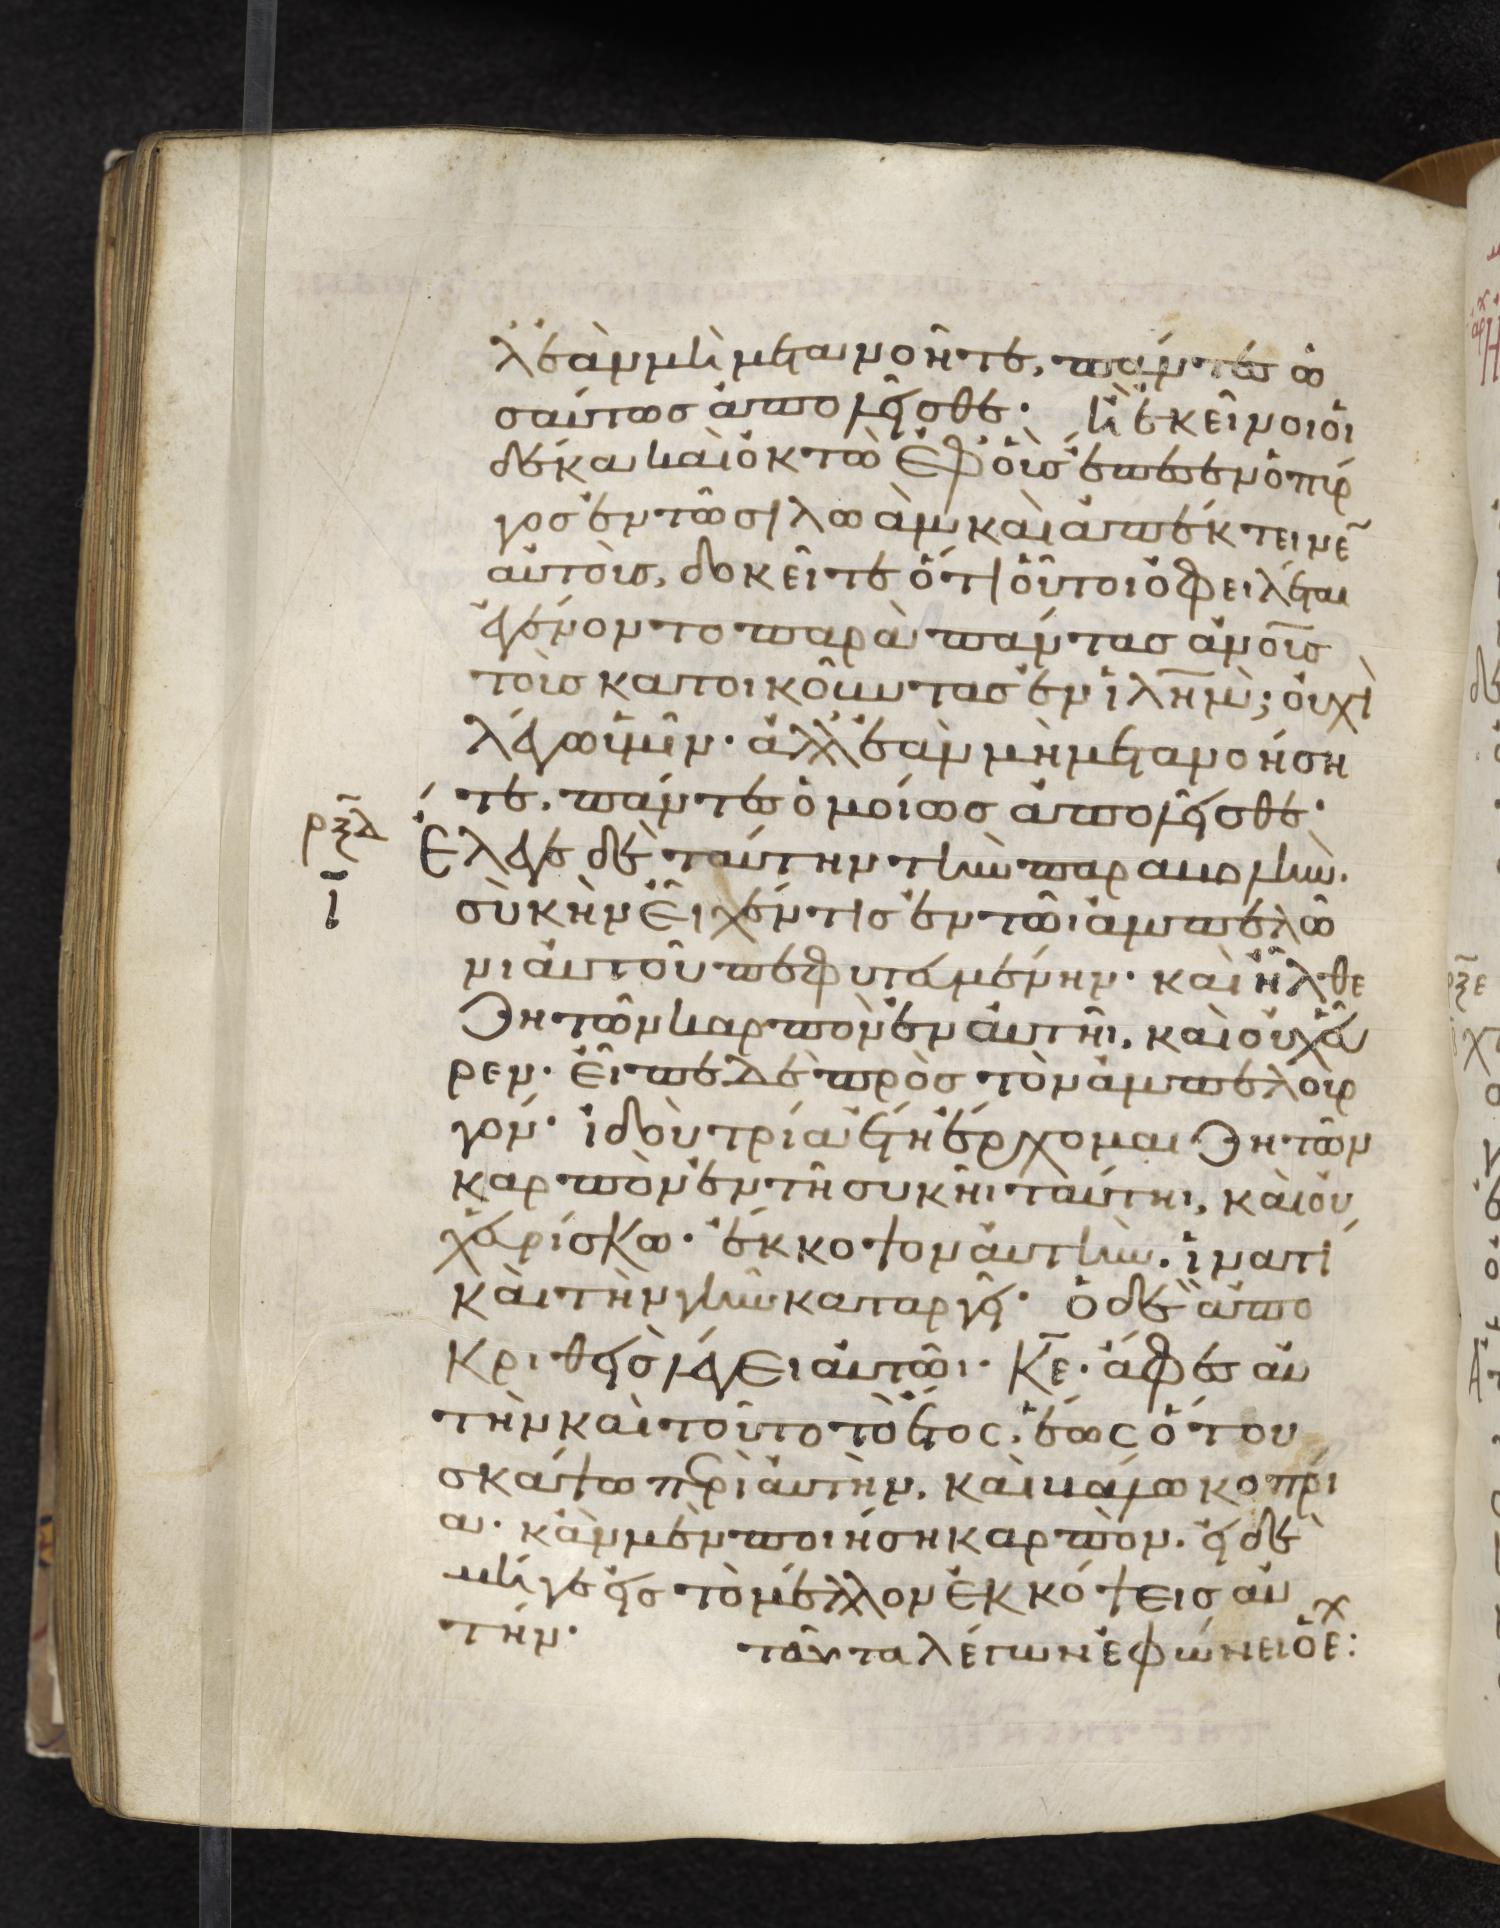 λ' ἐὰν μὴ μετανοῆτε, πάντες ὡ
σαύτως ἀπολεῖσθε· ἢ ἐκεῖνοι οἱ
δέκα καὶ ὀκτὼ ἐφ' οὓς ἔπεσεν ὁ πύρ
γος ἐν τῶ σιλωὰμ καὶ ἀπέκτεινε
αὐτοὺς, δοκεῖτε ὅτι οὗτοι ὀφειλέται
ἐγένοντο παρὰ πάντας ἀνο̅υς
τοὺς κατοικοῦντας ἐν ἱλη̅μ̀; οὐχὶ
λέγω ὑμῖν· ἀλλ' ἐὰν μὴ μετανοήση
τε, πάντες ὁμοίως ἀπολεῖσθε·
ρξδ Ἔλεγε δὲ ταύτην τὴν παραβολὴν.
ι̅ σὺκὴν εἶχέν τις ἐν τῶι ἀμπελῶ
νι αὐτοῦ πεφυτευμένην· καὶ ἦλθε
ζητῶν καρπὸν ἐν αὐτῆι, καὶ οὐχ εὗ
ρεν· εἶπε δὲ πρὸς τὸν ἀμπελουρ
γόν· ἰδοὺ τρία ἔτη ἔρχομαι ζητῶν
καρπὸν ἐν τῆ συκῆι ταύτηι, καὶ οὐ
χ εὑρίσκω· ἔκκοψον αὐτὴν. ἱνατί
καὶ τὴν γῆν καταργεῖ· ὁ δὲ ἀπο
κριθεὶς λέγει αὐτῶι· κ̅ε· ἄφες αὐ
τὴν καὶ τοῦτο τὸ ἔτος, ἕως ὅτου
σκάψω περὶ αὐτὴν, καὶ βάλω κόπρι
α· κἂν μὲν ποιήση καρπὸν. εἰ δὲ
μή γε εἰς τὸ μέλλον ἐκκόψεις αὐ
τήν· ταῦτα λέγων ἐφώνει ὁ ε̅χ: